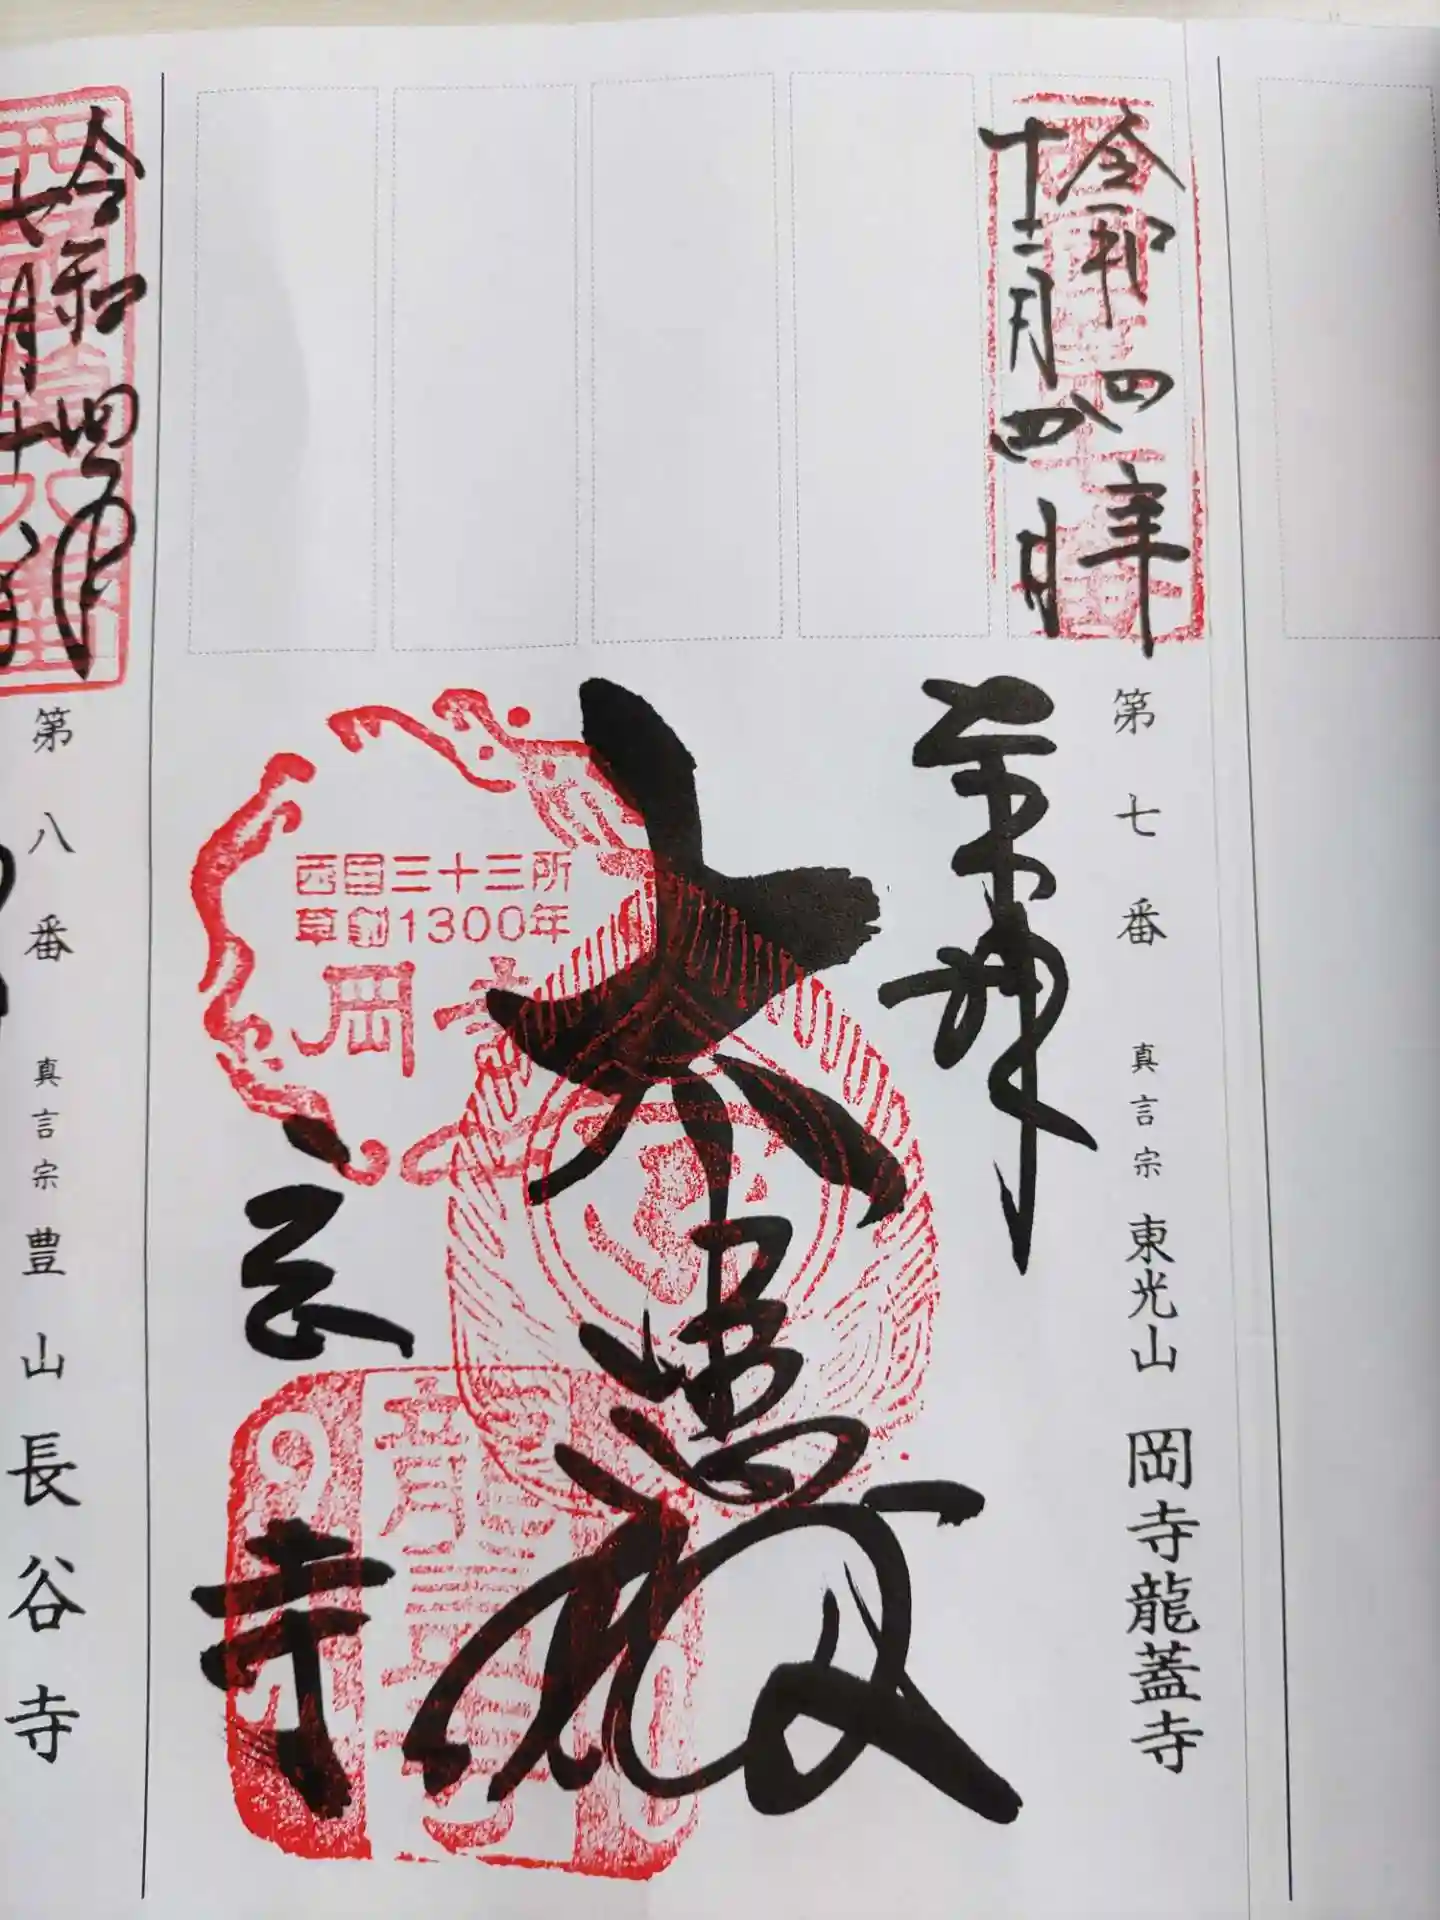 令和四年
十二月四日
第七番 真言宗 東光山 岡寺龍蓋寺
奉拝
大悲殿
西国三十三所
草創1300年
岡寺
龍蓋寺
令和四年
七月十
第八番 真言宗 豊山 長谷寺